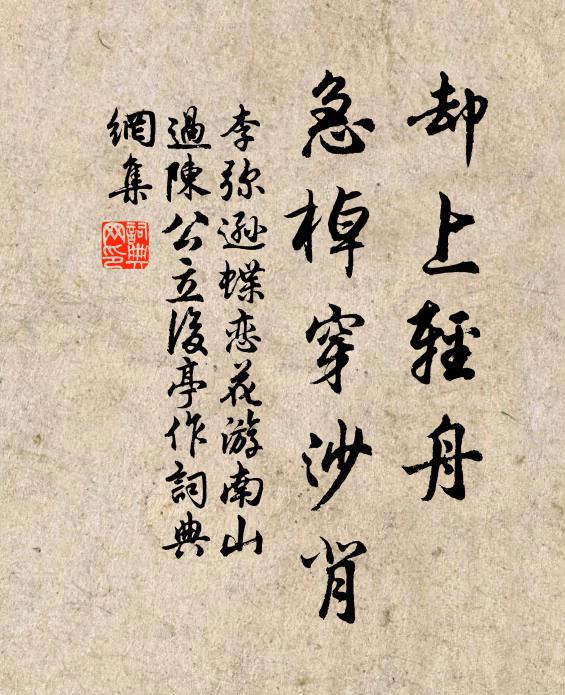 却上輕舟
急棹穿沙背
李弥遜蝶恋花游南山
過陳公立後亭作詞典
網集
詞典
网印